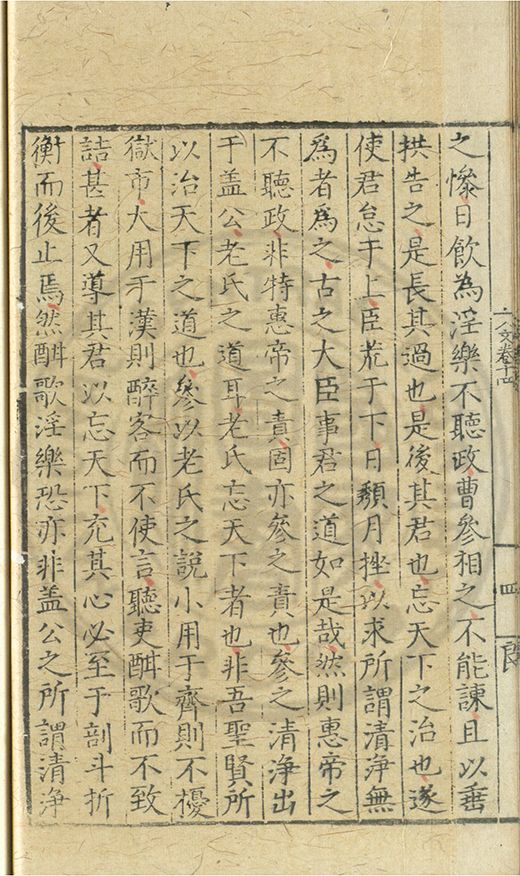 之慘日飲為淫樂不聽政曹參相之不能諫且以垂
拱告之是長其過也是後其君也忘天下之治也遂
使君怠于上臣荒于下日頹月挫以求所謂清淨無
為者為之古之大臣事君之道如是哉然則惠帝之
不聽政非特惠帝之責固亦參之責也參之清淨出
于盖公老氏之道耳老氏忘天下者也非吾聖賢所
以治天下之道也參以老氏之說小用于齊則不擾
獄市大用于漢則醉客而不使言聽吏酣歌而不致
詰甚者又導其君以忘天下充其心必至于剖斗折
衡而後止焉然酣歌淫樂恐亦非盖公之所謂清淨
卷十四
四